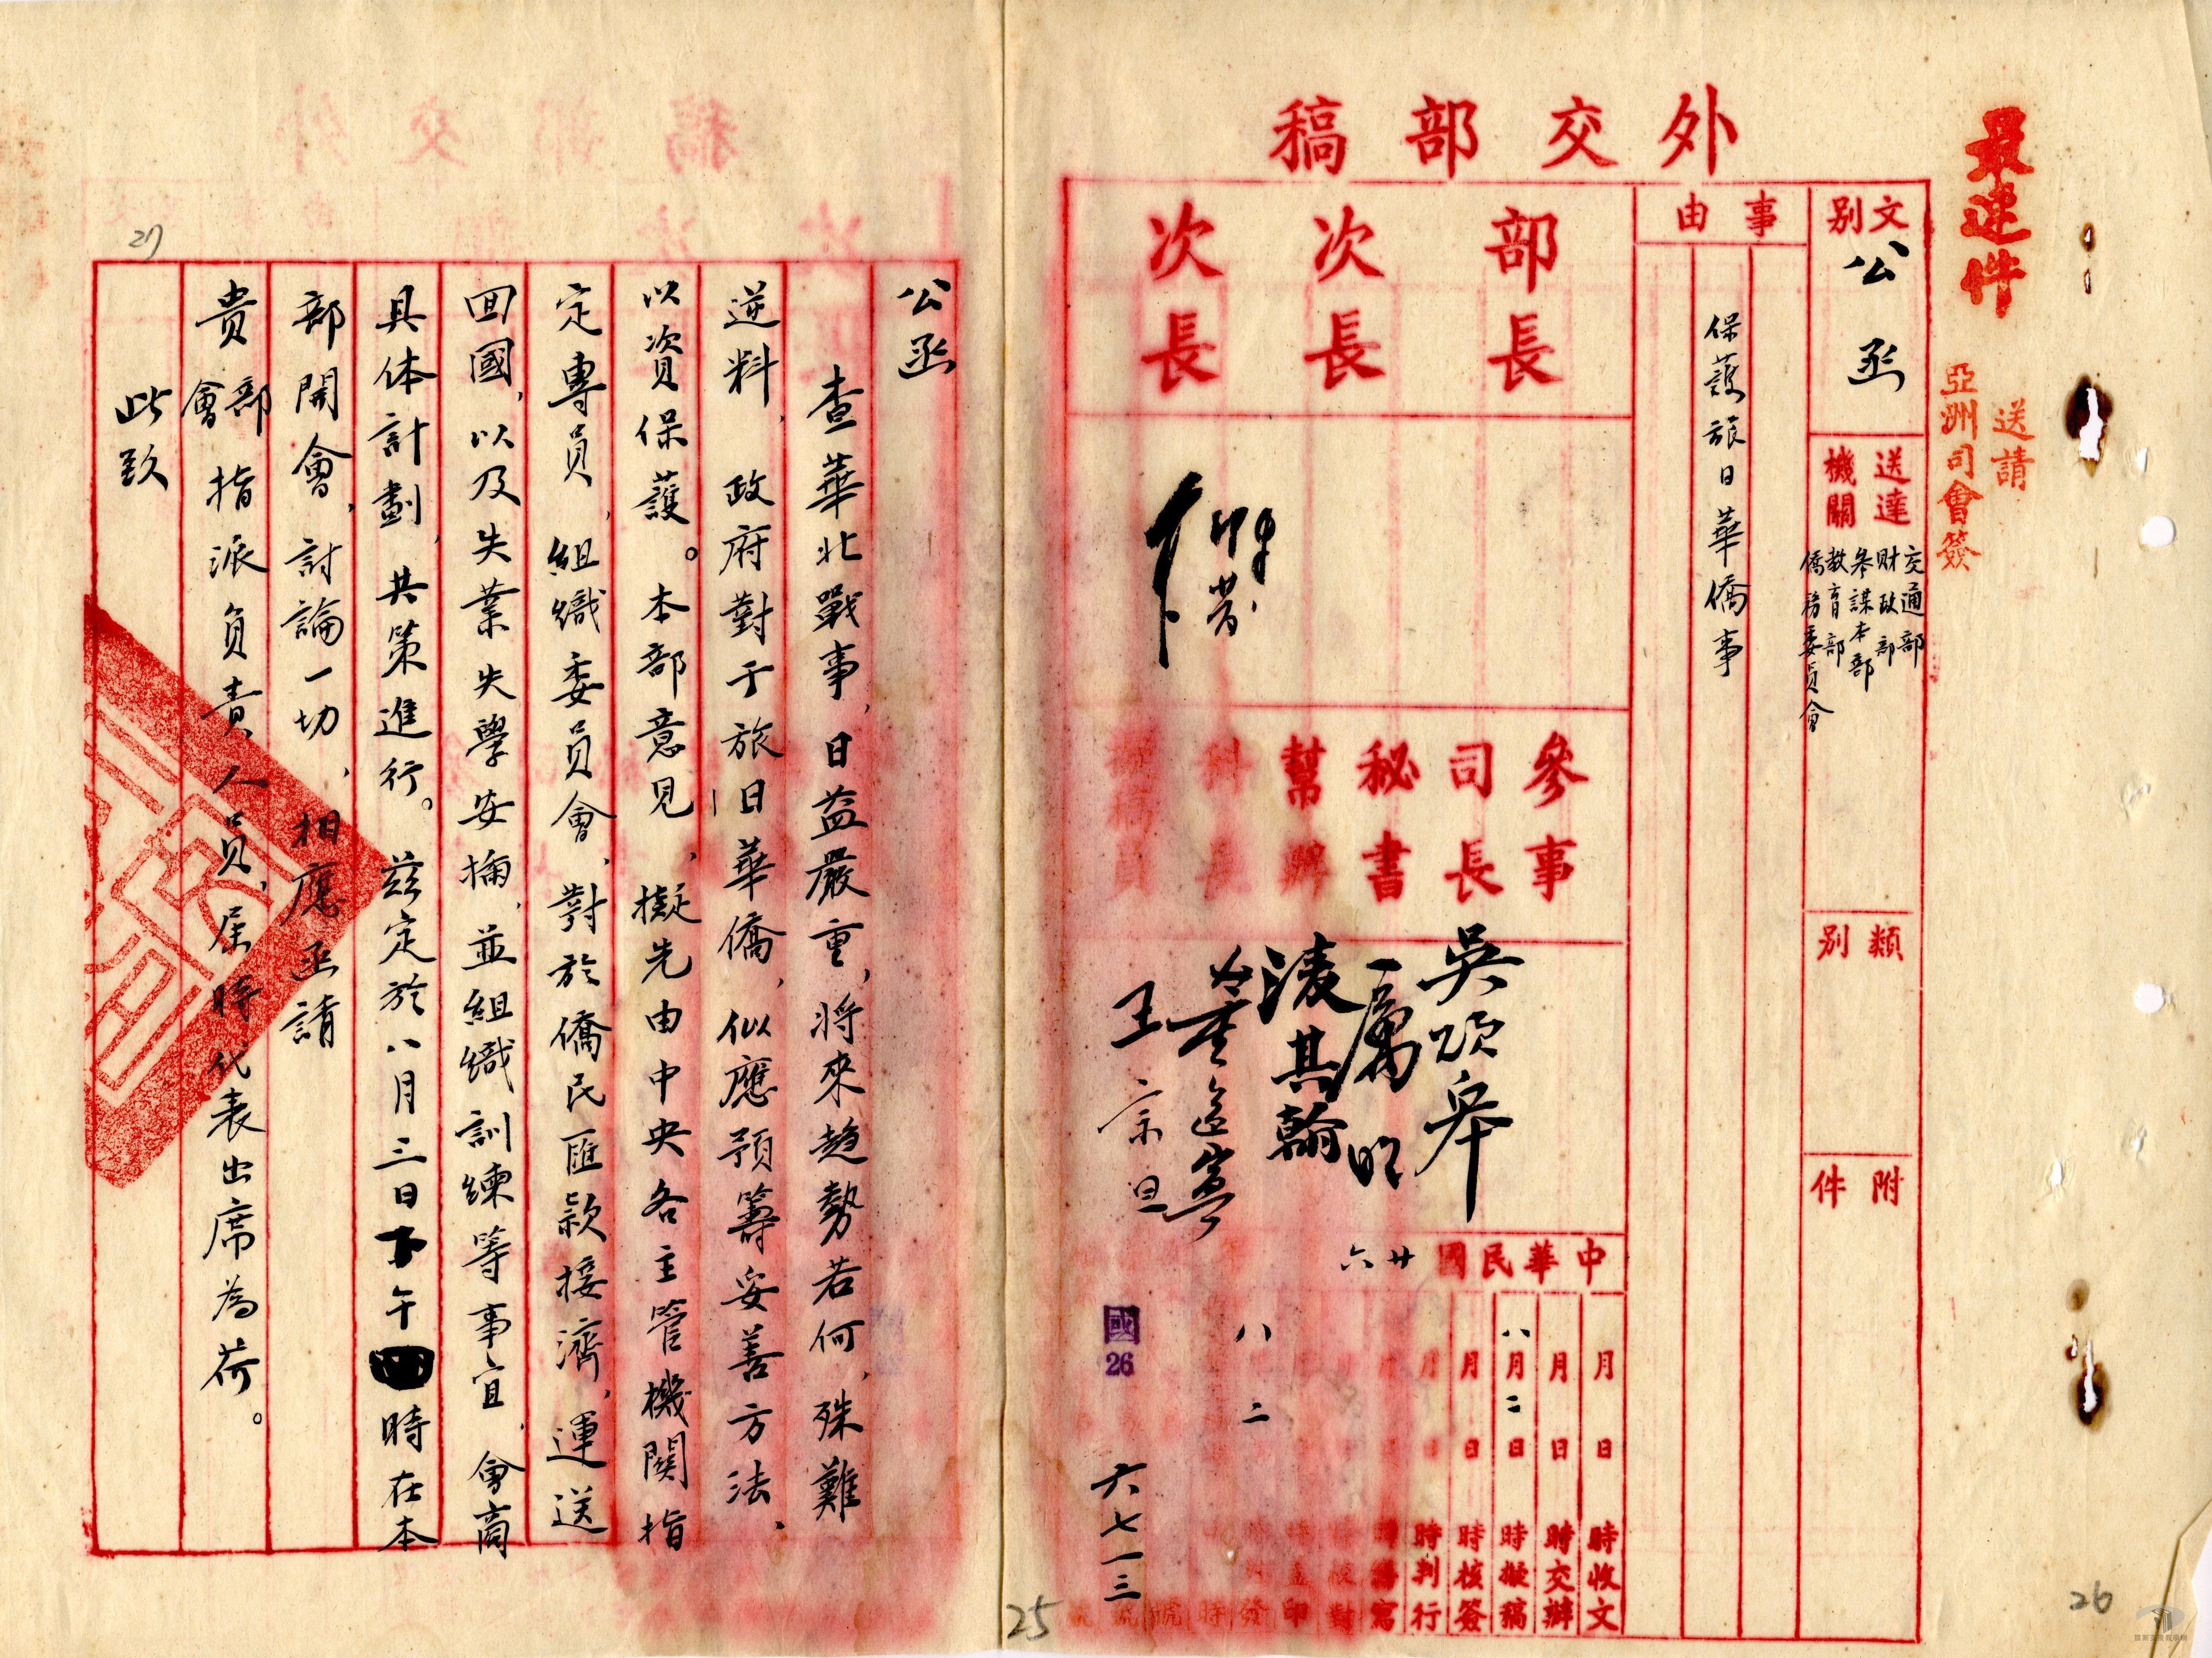 最速件
送請
亞洲司會簽
外交部稿
文別
公函
送達機關
交通部
財政部
參謀本部
教育部
僑務委員會
類別
附件
事由
保護旅日華僑事
部長
次長
次長
參事
司長
秘書
幫辦
科長
擬稿員
吳頌皋
淩其翰
董道寧
王宗旦
中華民國廿六
月 日 時收文
月 日 時交辦
八月二日 時擬稿
月 日 時核簽
月 日 時判行
月 日 時繕寫
時校對
時蓋印
時發
八 二
國
26
六七一三
25
26
27
公函
查華北戰事、日益嚴重、將來趋勢若何、殊難
逆料、政府對于旅日華僑、似應預籌妥善方法、
以資保護。本部意見、擬先由中央各主管機関指
定專員、組織委員會、對於僑民匯款接濟、運送
回國、以及失業失學安插、並組織訓練等事宜、會商
具体計劃、共策進行。茲定於八月三日下午時在本
部開會、討論一切、相應函請
貴部會指派負責人員、屆時代表出席為荷。
此致